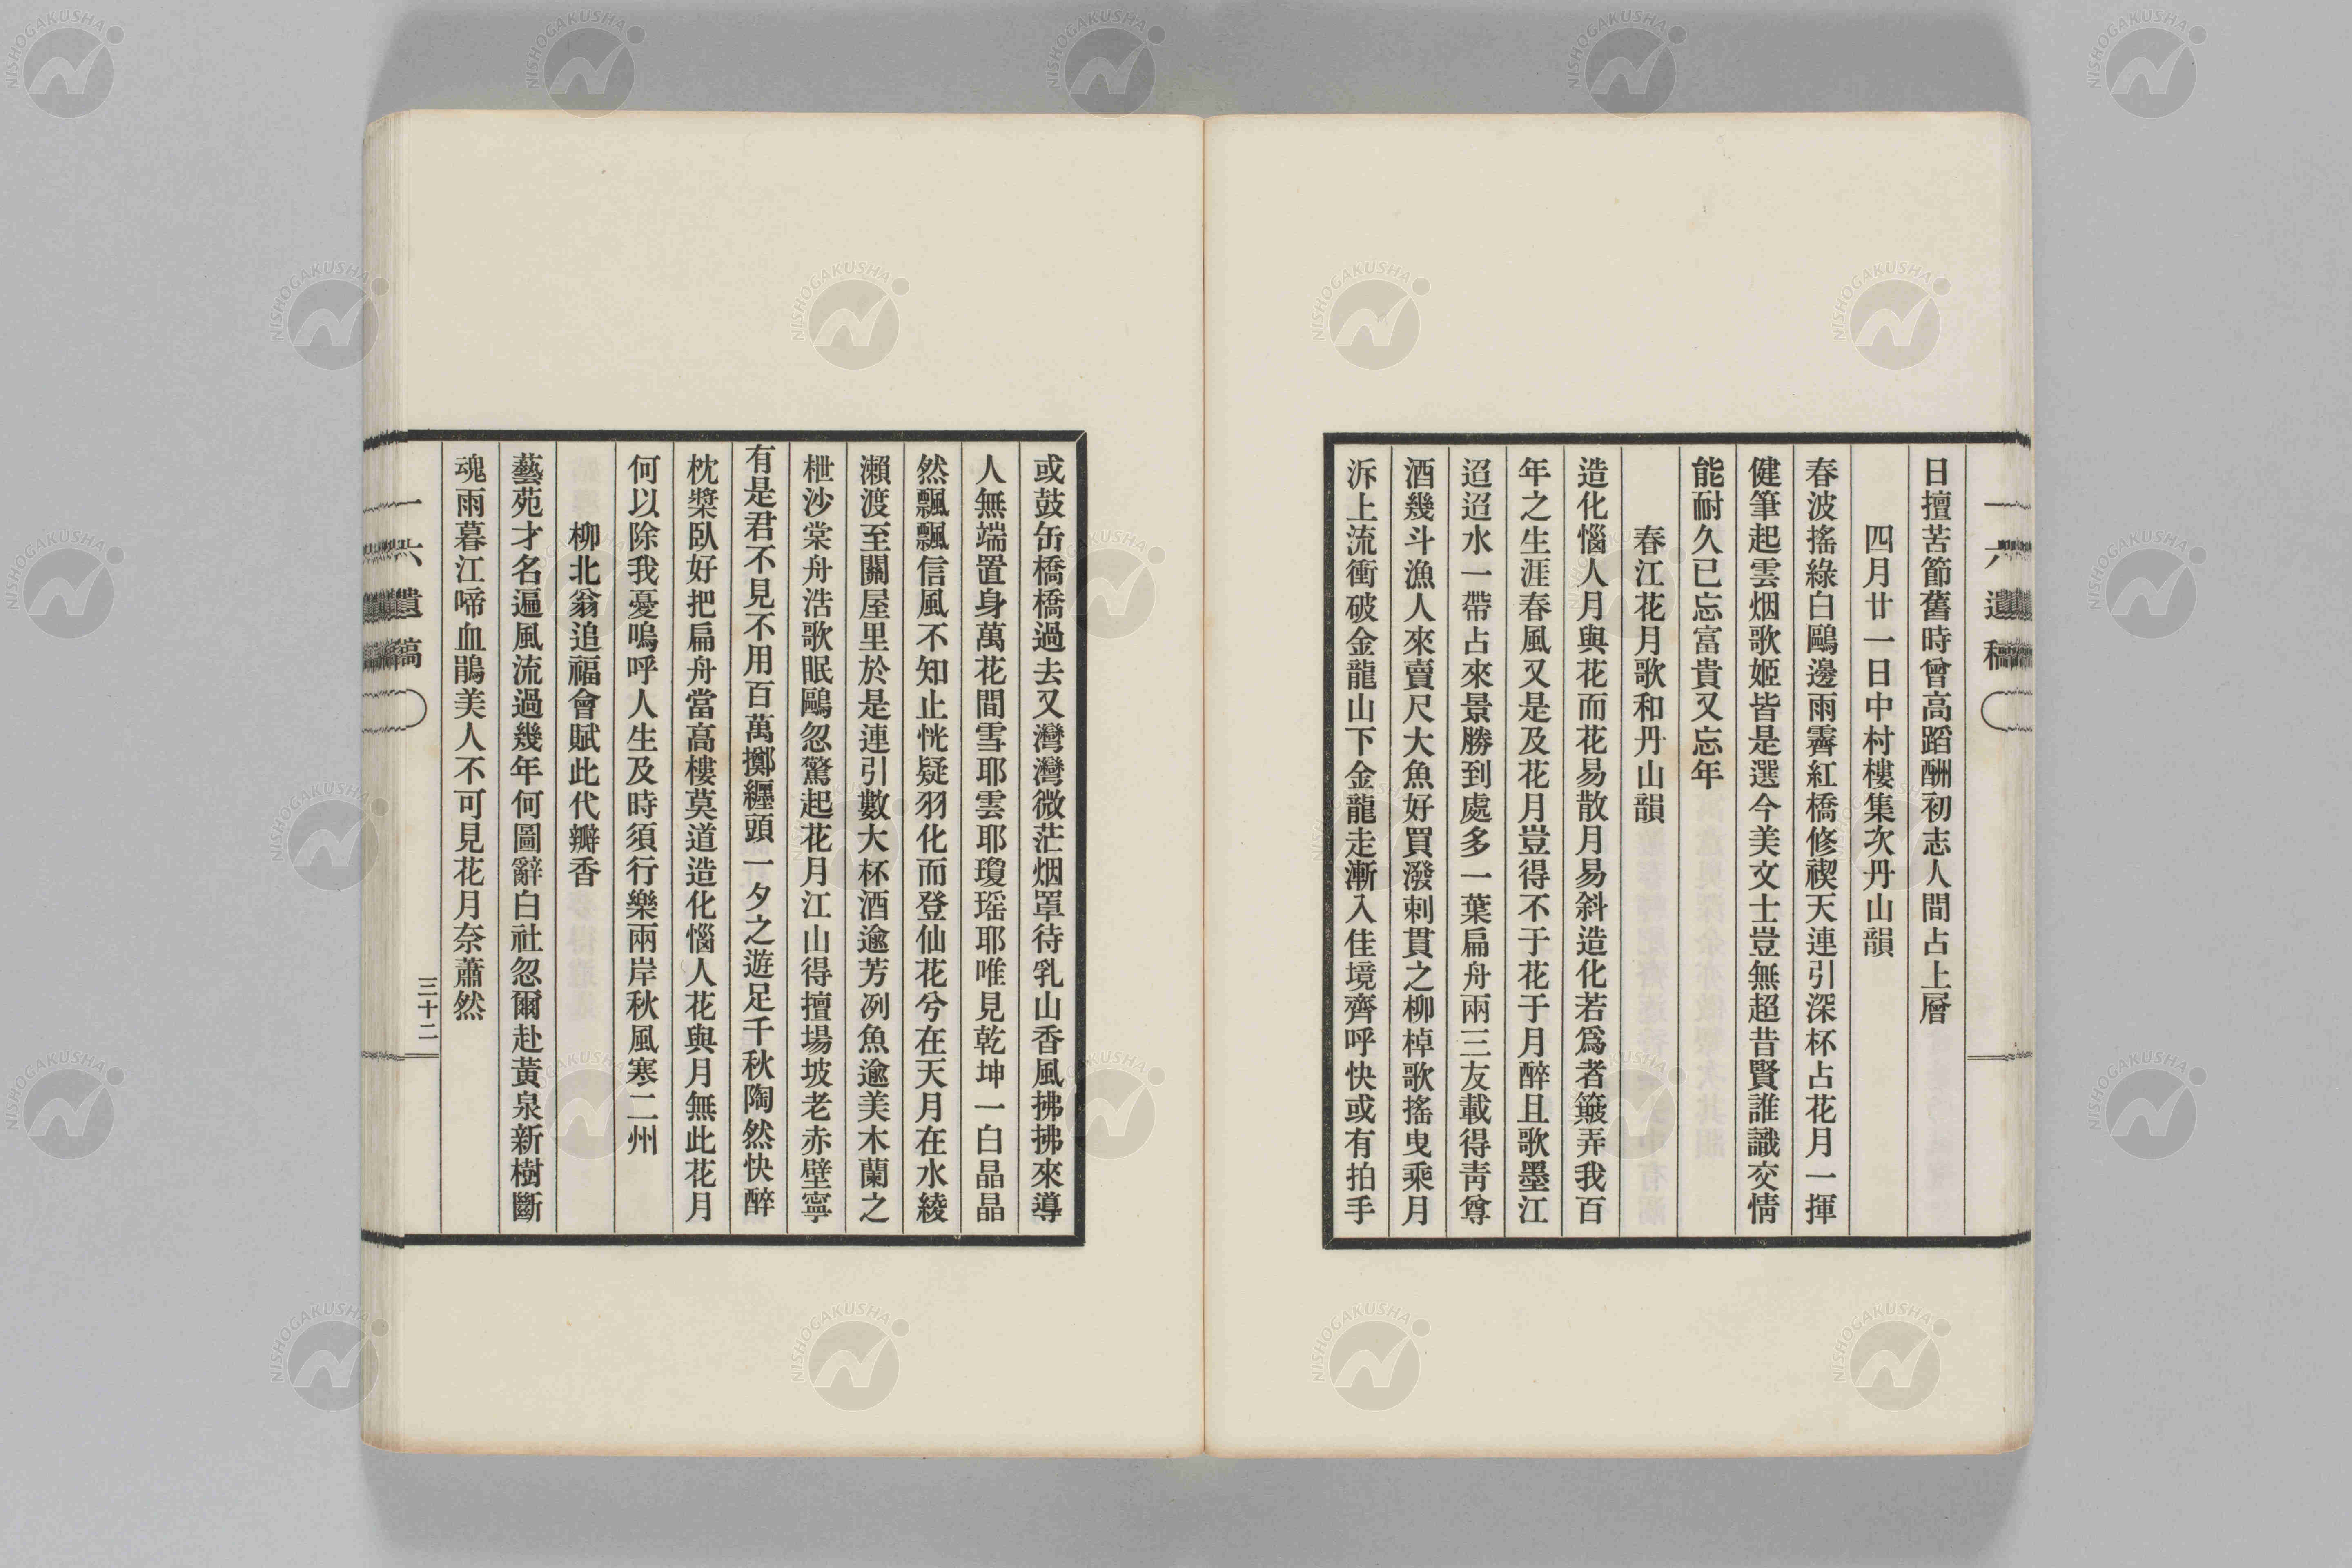 一六遺稿
日擅苦節舊時曾高蹈酬初志人間占上層
四月廿一日中村樓集次丹山韻
春波搖綠白鷗邊雨霽紅橋修禊天連引深杯占花月一揮
健筆起雲烟歌姬皆是選今美文士豈無超昔賢誰識交情
能耐久已忘富貴又忘年
春江花月歌和丹山韻
造化惱人月與花而花易散月易斜造化若爲者簸弄我百
年之生涯春風又是及花月豈得不于花于月醉且歌墨江
迢迢水一帶占來景勝到處多一葉扁舟兩三友載得靑尊
酒幾斗漁人來賣尺大魚好買潑剌貫之柳棹歌搖曳乘月
泝上流衝破金龍山下金龍走漸入佳境齊呼快或有拍手
或鼓缶橋橋過去又灣灣微茫烟罩待乳山香風拂拂來導
人無端置身萬花間雪耶雲耶瓊瑶耶唯見乾坤一白晶晶
然飄飄信風不知止恍疑羽化而登仙花兮在天月在水綾
瀨渡至關屋里於是連引數大杯酒逾芳冽魚逾美木蘭之
枻沙棠舟浩歌眠鷗忽驚起花月江山得擅場坡老赤壁寧
有是君不見不用百萬擲纒頭一夕之遊足千秋陶然快醉
枕槳臥好把扁舟當高樓莫道造化惱人花與月無此花月
何以除我憂嗚呼人生及時須行樂兩岸秋風寒二州
柳北翁追福會賦此代瓣香
藝苑才名遍風流過幾年何圖辭白社忽爾赴黃泉新樹斷
魂雨暮江啼血鵑美人不可見花月奈蕭然
一六遺稿
三十二
NISHOGAKUSHA